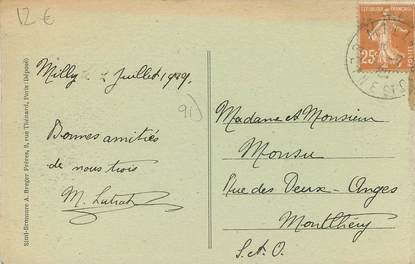 12 €
Milly 2 Juillet 1929.
91)
Bonnes amitiés
de nous trois
Madame et Monsieur
Monsu
Rue des Deux-Anges
Montlhéry
S.&O.
REPUBLIQUE FRANÇAISE
25c
POSTES
Simi-Bromure A. Breger Frères, 9, rue Thénard, Paris (Déposé)